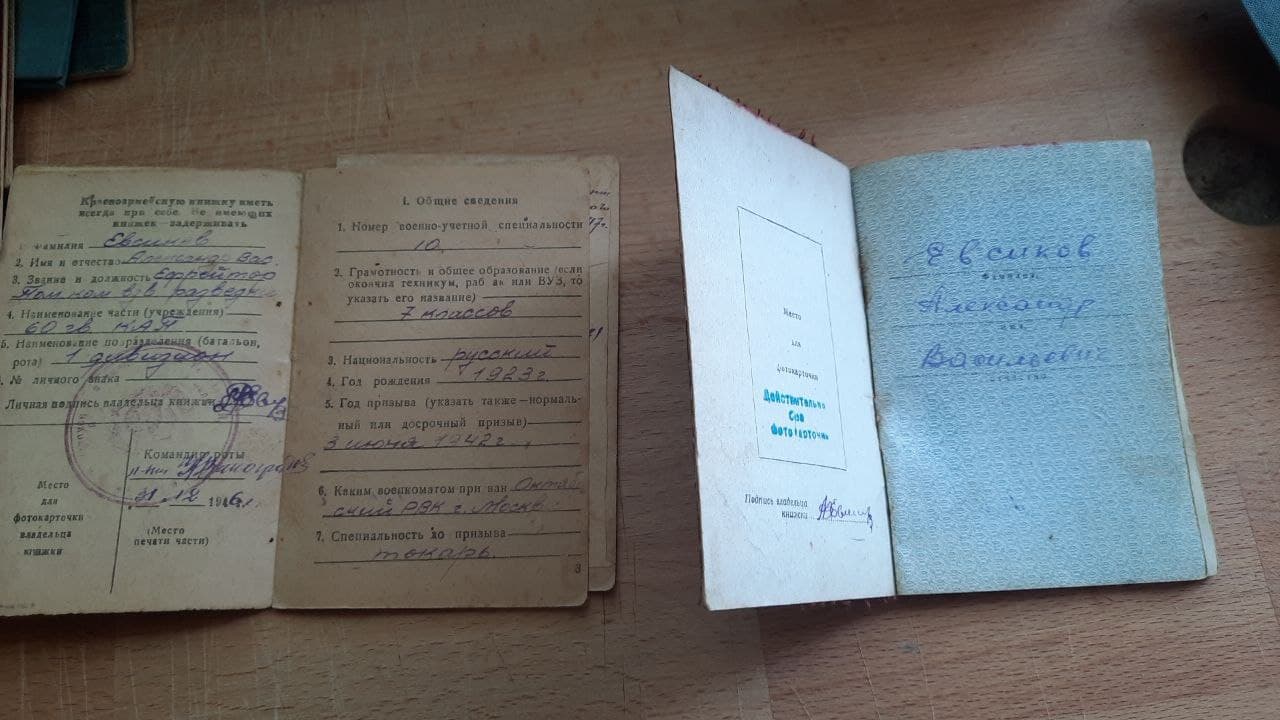 Красноармейскую книжку иметь
всегда при себе. Не имеющих
книжек - задерживать
Фамилия Евсиков
2. Имя и отчество Александр Вас.
3. Звание и должность Ефрейтор
Пом ком в/в разведчик
4. Наименование части (учреждения)
60 гв. КАП
5. Наименование подразделения (батальон,
рота) 1 дивизион
№ личного знака
Личная подпись владельца книжки
Командир роты
31.12 1946 г.
Место
для
фотокарточки
владельца
книжки
(Место
печати части)
I. Общие сведения
1. Номер военно-учетной специальности
10
2. Грамотность и общее образование (если
окончил техникум, рабфак или ВУЗ, то
указать его название)
7 классов
3. Национальность русский
4. Год рождения 1923 г.
5. Год призыва (указать также — нормаль-
ный или досрочный призыв)
3 июня 1942 г.
6. Каким военкоматом призван Октябрь
ский РВК г. Москв
7. Специальность до призыва
токарь.
3
Место
для
фотокарточки
Действительно
без
Фотокарточки
Подпись владельца
книжки
Евсиков
Фамилия
Александр
имя
Васильевич
отчество